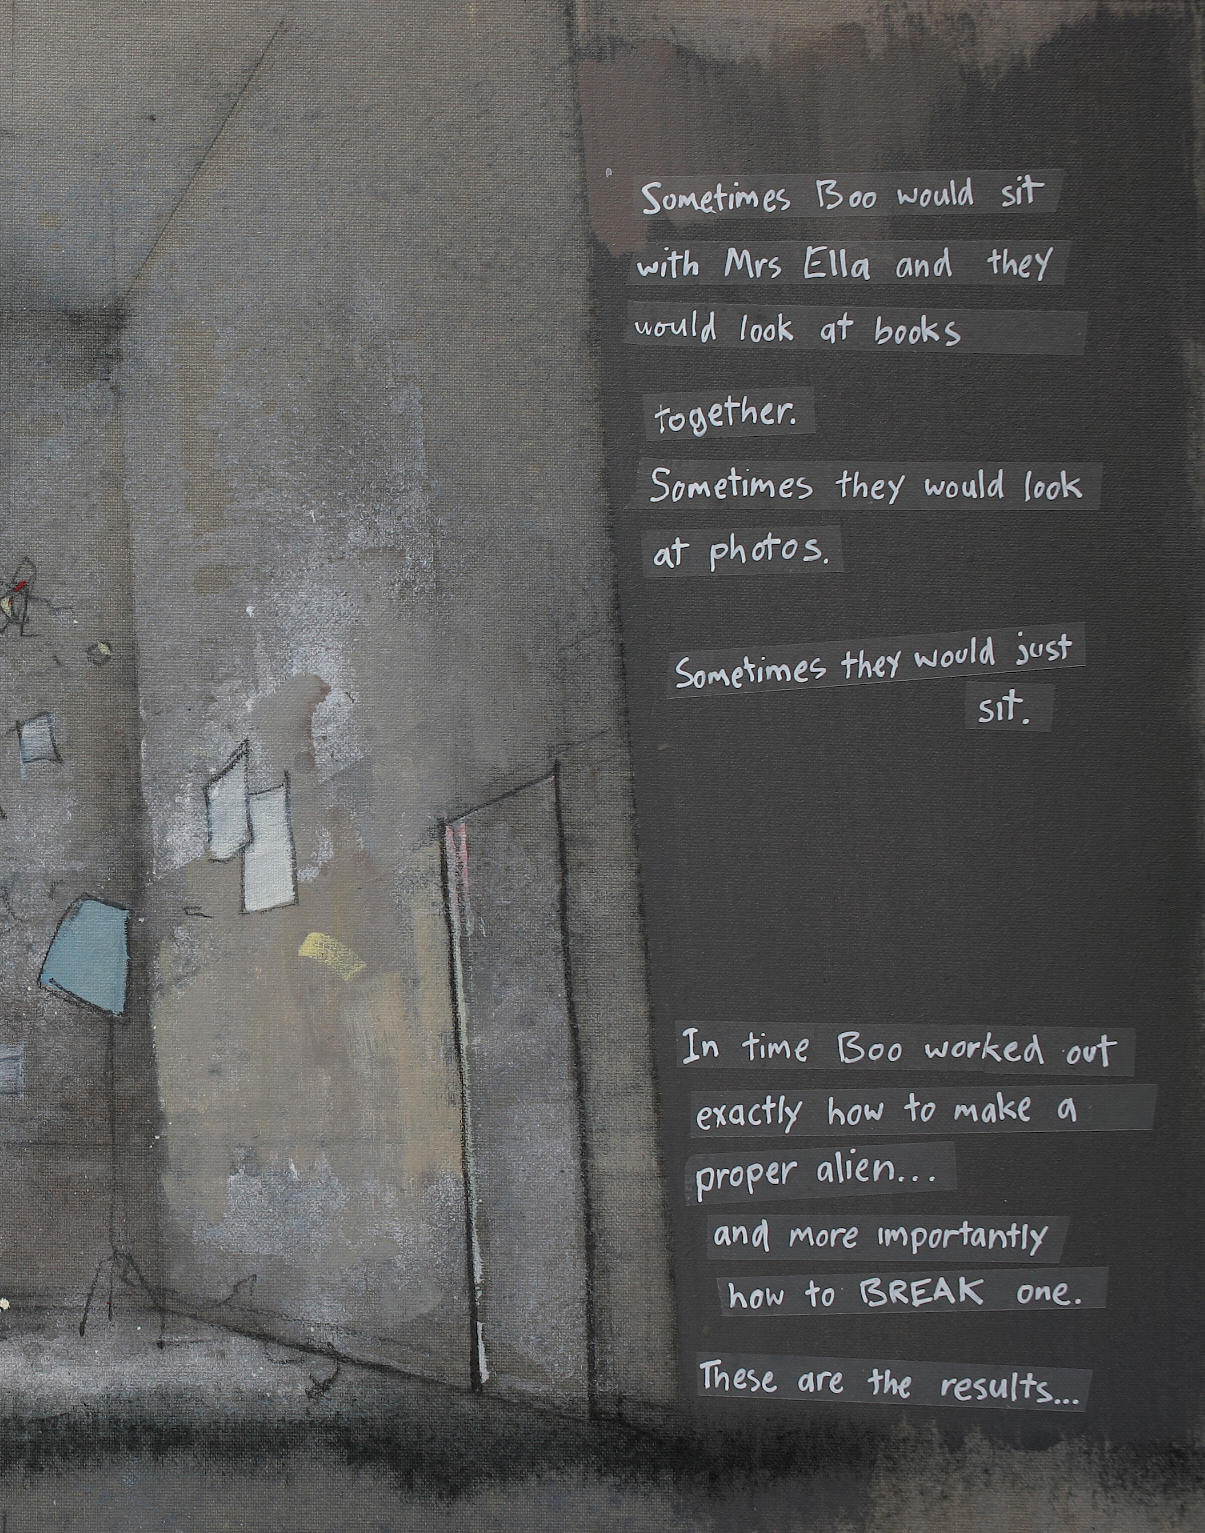 Sometimes Boo would sit
with Mrs Ella and they
would look at books
together.
Sometimes they would look
at photos.
Sometimes they would just
sit.
In time Boo worked out
exactly how to make a
proper alien...
and more importantly
how to BREAK one.
These are the results...